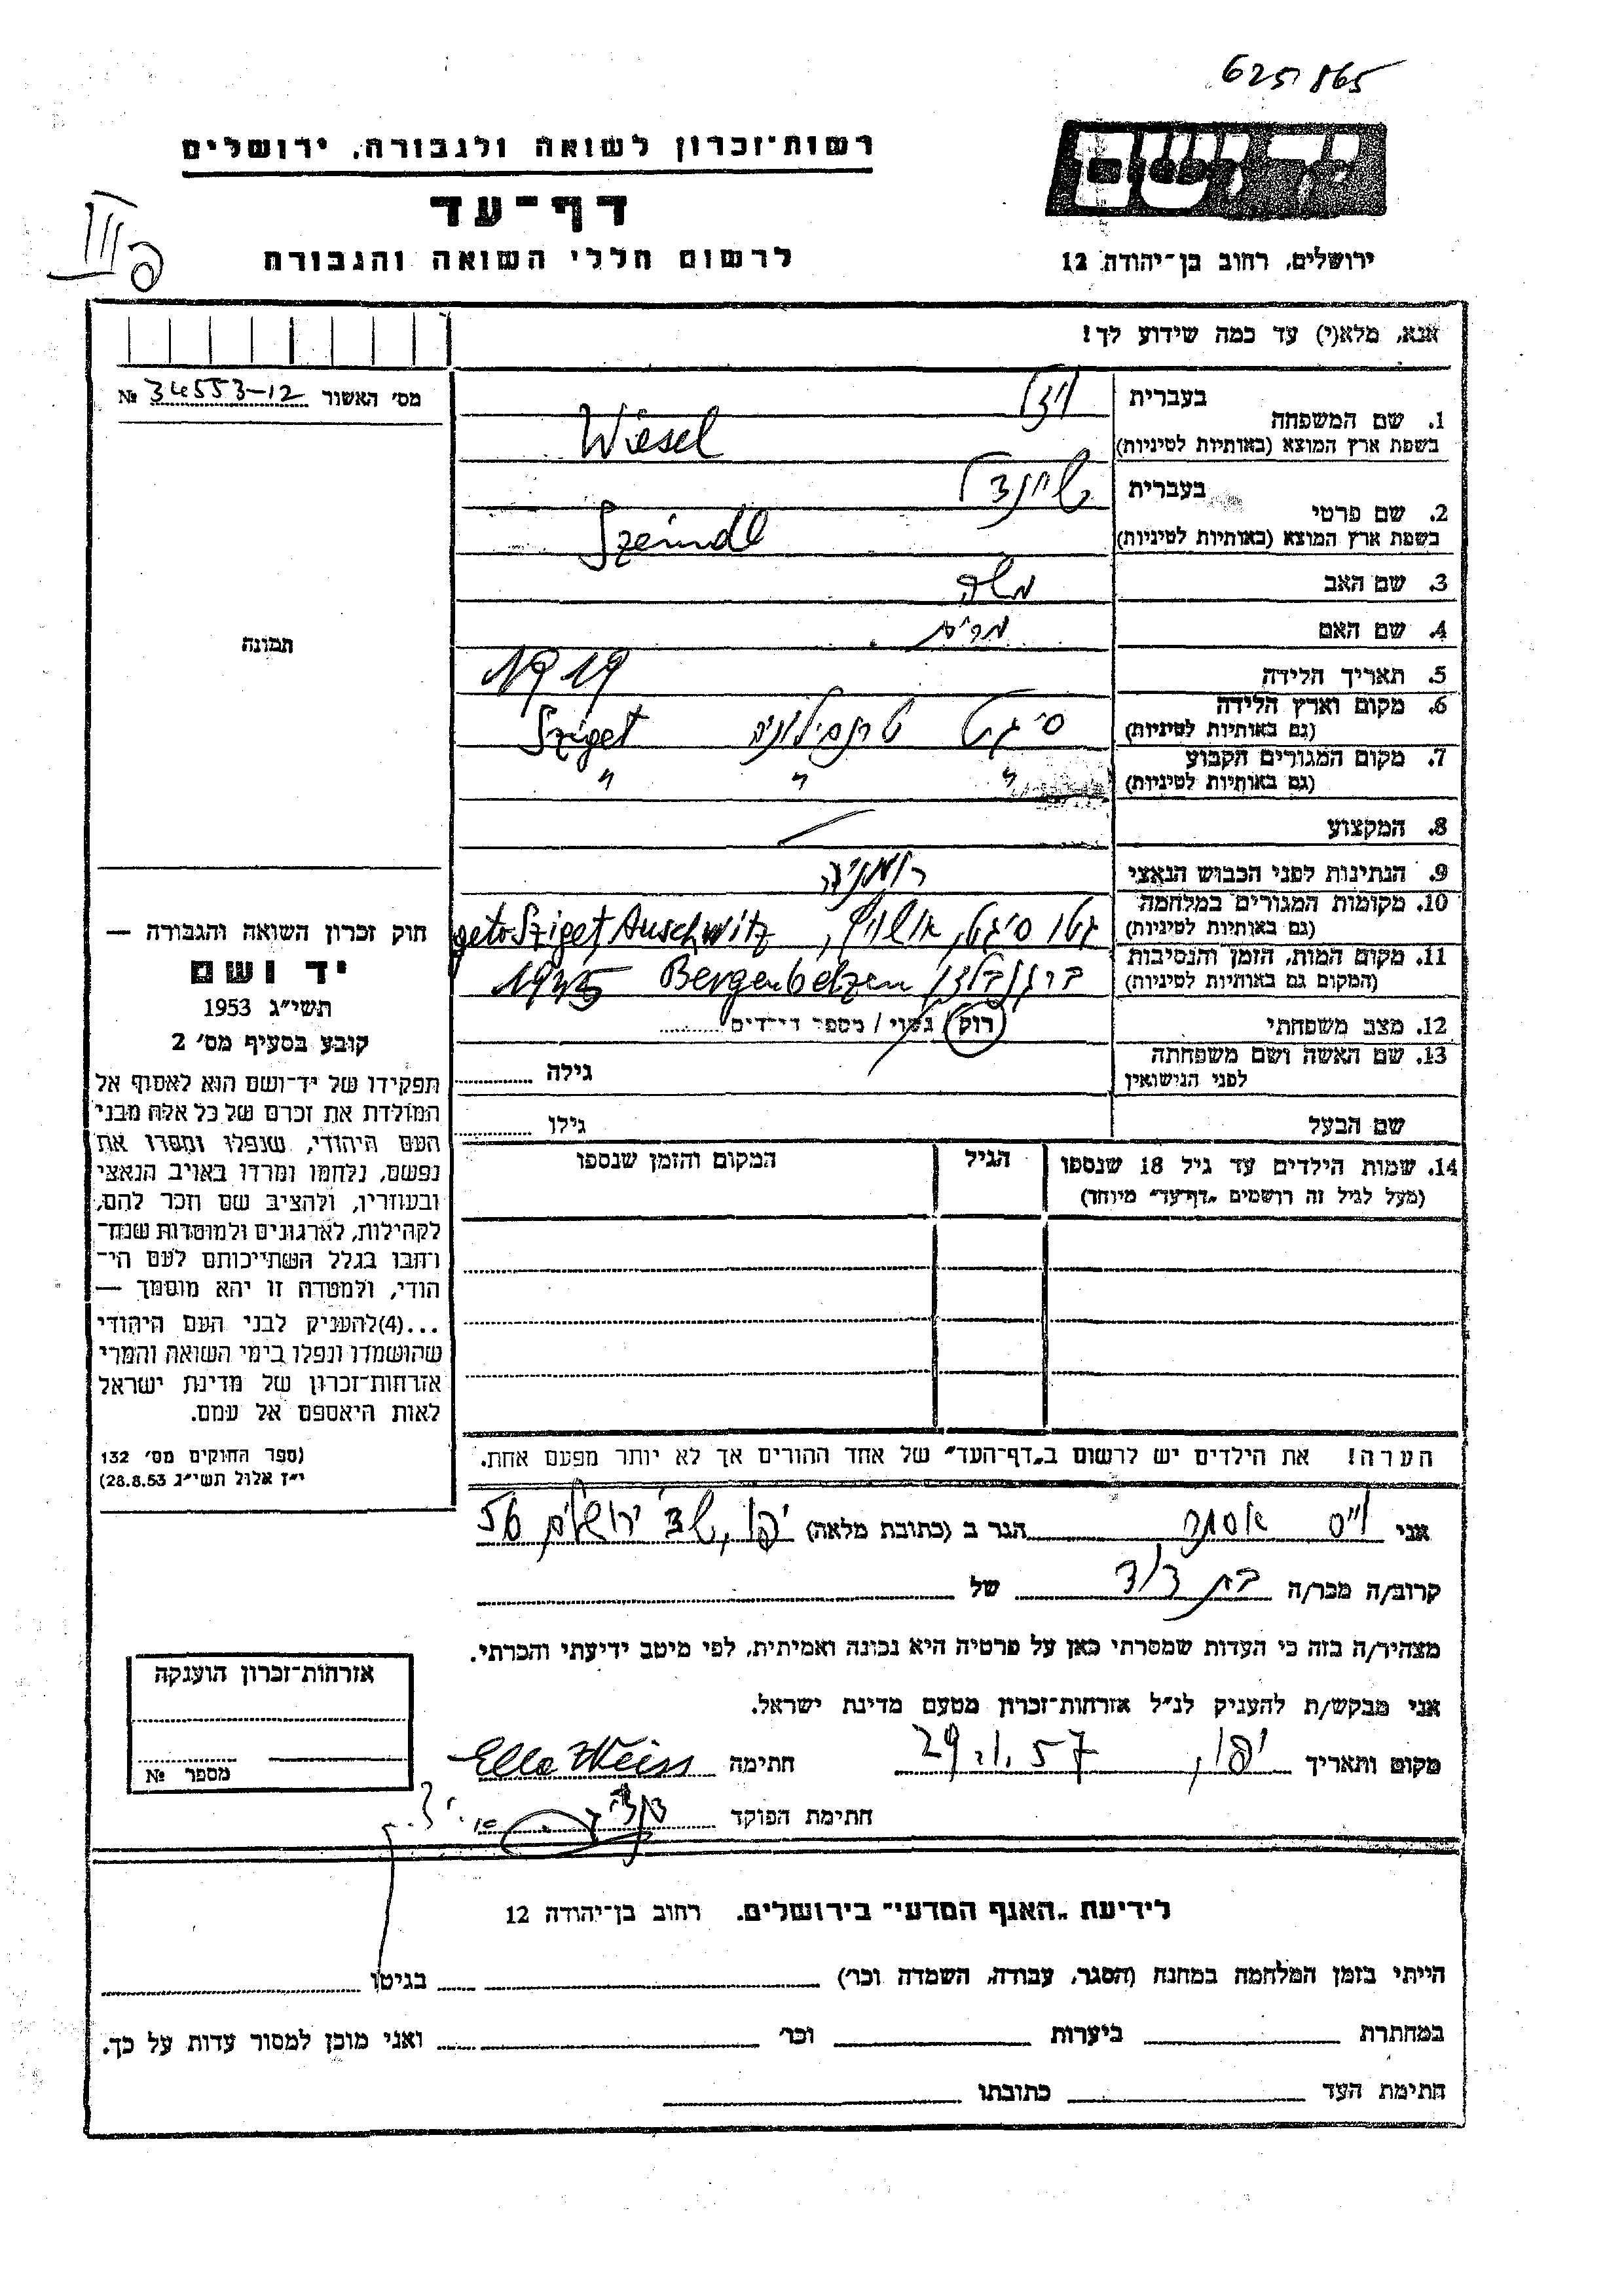 625865
רשות־זכרון לשואה ולגבורה, ירושלים
יד ושם
דף־עד
לרשום חללי השואה והגבורה
ירושלים, רחוב בן־יהודה 12
אנא, מלא(י) עד כמה שידוע לך!
מס׳ האשור 34553-12 №
בעברית
1. שם המשפחה
בשפת ארץ המוצא (באותיות לטיניות) Wiesel
בעברית שיינדל
2. שם פרטי
בשפת ארץ המוצא (באותיות לטיניות) Szeindl
3. שם האב משה
4. שם האם מרים
תמונה
5. תאריך הלידה 1919
6. מקום וארץ הלידה סיגט טרנסילוניה Sziget
(גם באותיות לטיניות)
7. מקום המגורים הקבוע
(גם באותיות לטיניות) " " "
8. המקצוע
9. הנתינות לפני הכבוש הנאצי רומניה
10. מקומות המגורים במלחמה גטו סיגט, אושויץ, geto Sziget, Auschwitz
(גם באותיות לטיניות)
11. מקום המות, הזמן והנסיבות ברגנבלזן Bergenbelzen 1945
(המקום גם באותיות לטיניות)
12. מצב משפחתי רוק / נשוי / מספר הילדים
13. שם האשה ושם משפחתה
לפני הנישואין גילה
שם הבעל גילו
14. שמות הילדים עד גיל 18 שנספו הגיל המקום והזמן שנספו
(מעל לגיל זה רושמים „דף־עד״ מיוחד)
הערה! את הילדים יש לרשום ב„דף־העד״ של אחד ההורים אך לא יותר מפעם אחת.
חוק זכרון השואה והגבורה —
יד ושם
תשי״ג 1953
קובע בסעיף מס׳ 2
תפקידו של יד־ושם הוא לאסוף אל
המולדת את זכרם של כל אלה מבני
העם היהודי, שנפלו ומסרו את
נפשם, נלחמו ומרדו באויב הנאצי
ובעוזריו, ולהציב שם וזכר להם,
לקהילות, לארגונים ולמוסדות שנח־
רבו בגלל השתייכותם לעם הי־
הודי, ולמטרה זו יהא מוסמך —
...(4)להעניק לבני העם היהודי
שהושמדו ונפלו בימי השואה והמרי
אזרחות־זכרון של מדינת ישראל
לאות היאספם אל עמם.
(ספר החוקים מס׳ 132
י״ז אלול תשי״ג 28.8.53)
אני וייס אסתר הגר ב (כתובת מלאה) יפו, שד׳ ירושלים 56
קרוב/ה מכר/ה בת דוד של
מצהיר/ה בזה כי העדות שמסרתי כאן על פרטיה היא נכונה ואמיתית, לפי מיטב ידיעתי והכרתי.
אני מבקש/ת להעניק לנ״ל אזרחות־זכרון מטעם מדינת ישראל.
מקום ותאריך יפו, 29.1.57 חתימה Ella Weiss
חתימת הפוקד
אזרחות־זכרון הוענקה
מספר №
לידיעת „האגף המדעי״ בירושלים. רחוב בן־יהודה 12
הייתי בזמן המלחמה במחנה (הסגר, עבודה, השמדה וכו׳) בגיטו
במחתרת ביערות וכו׳ ואני מוכן למסור עדות על כך.
חתימת העד כתובתו